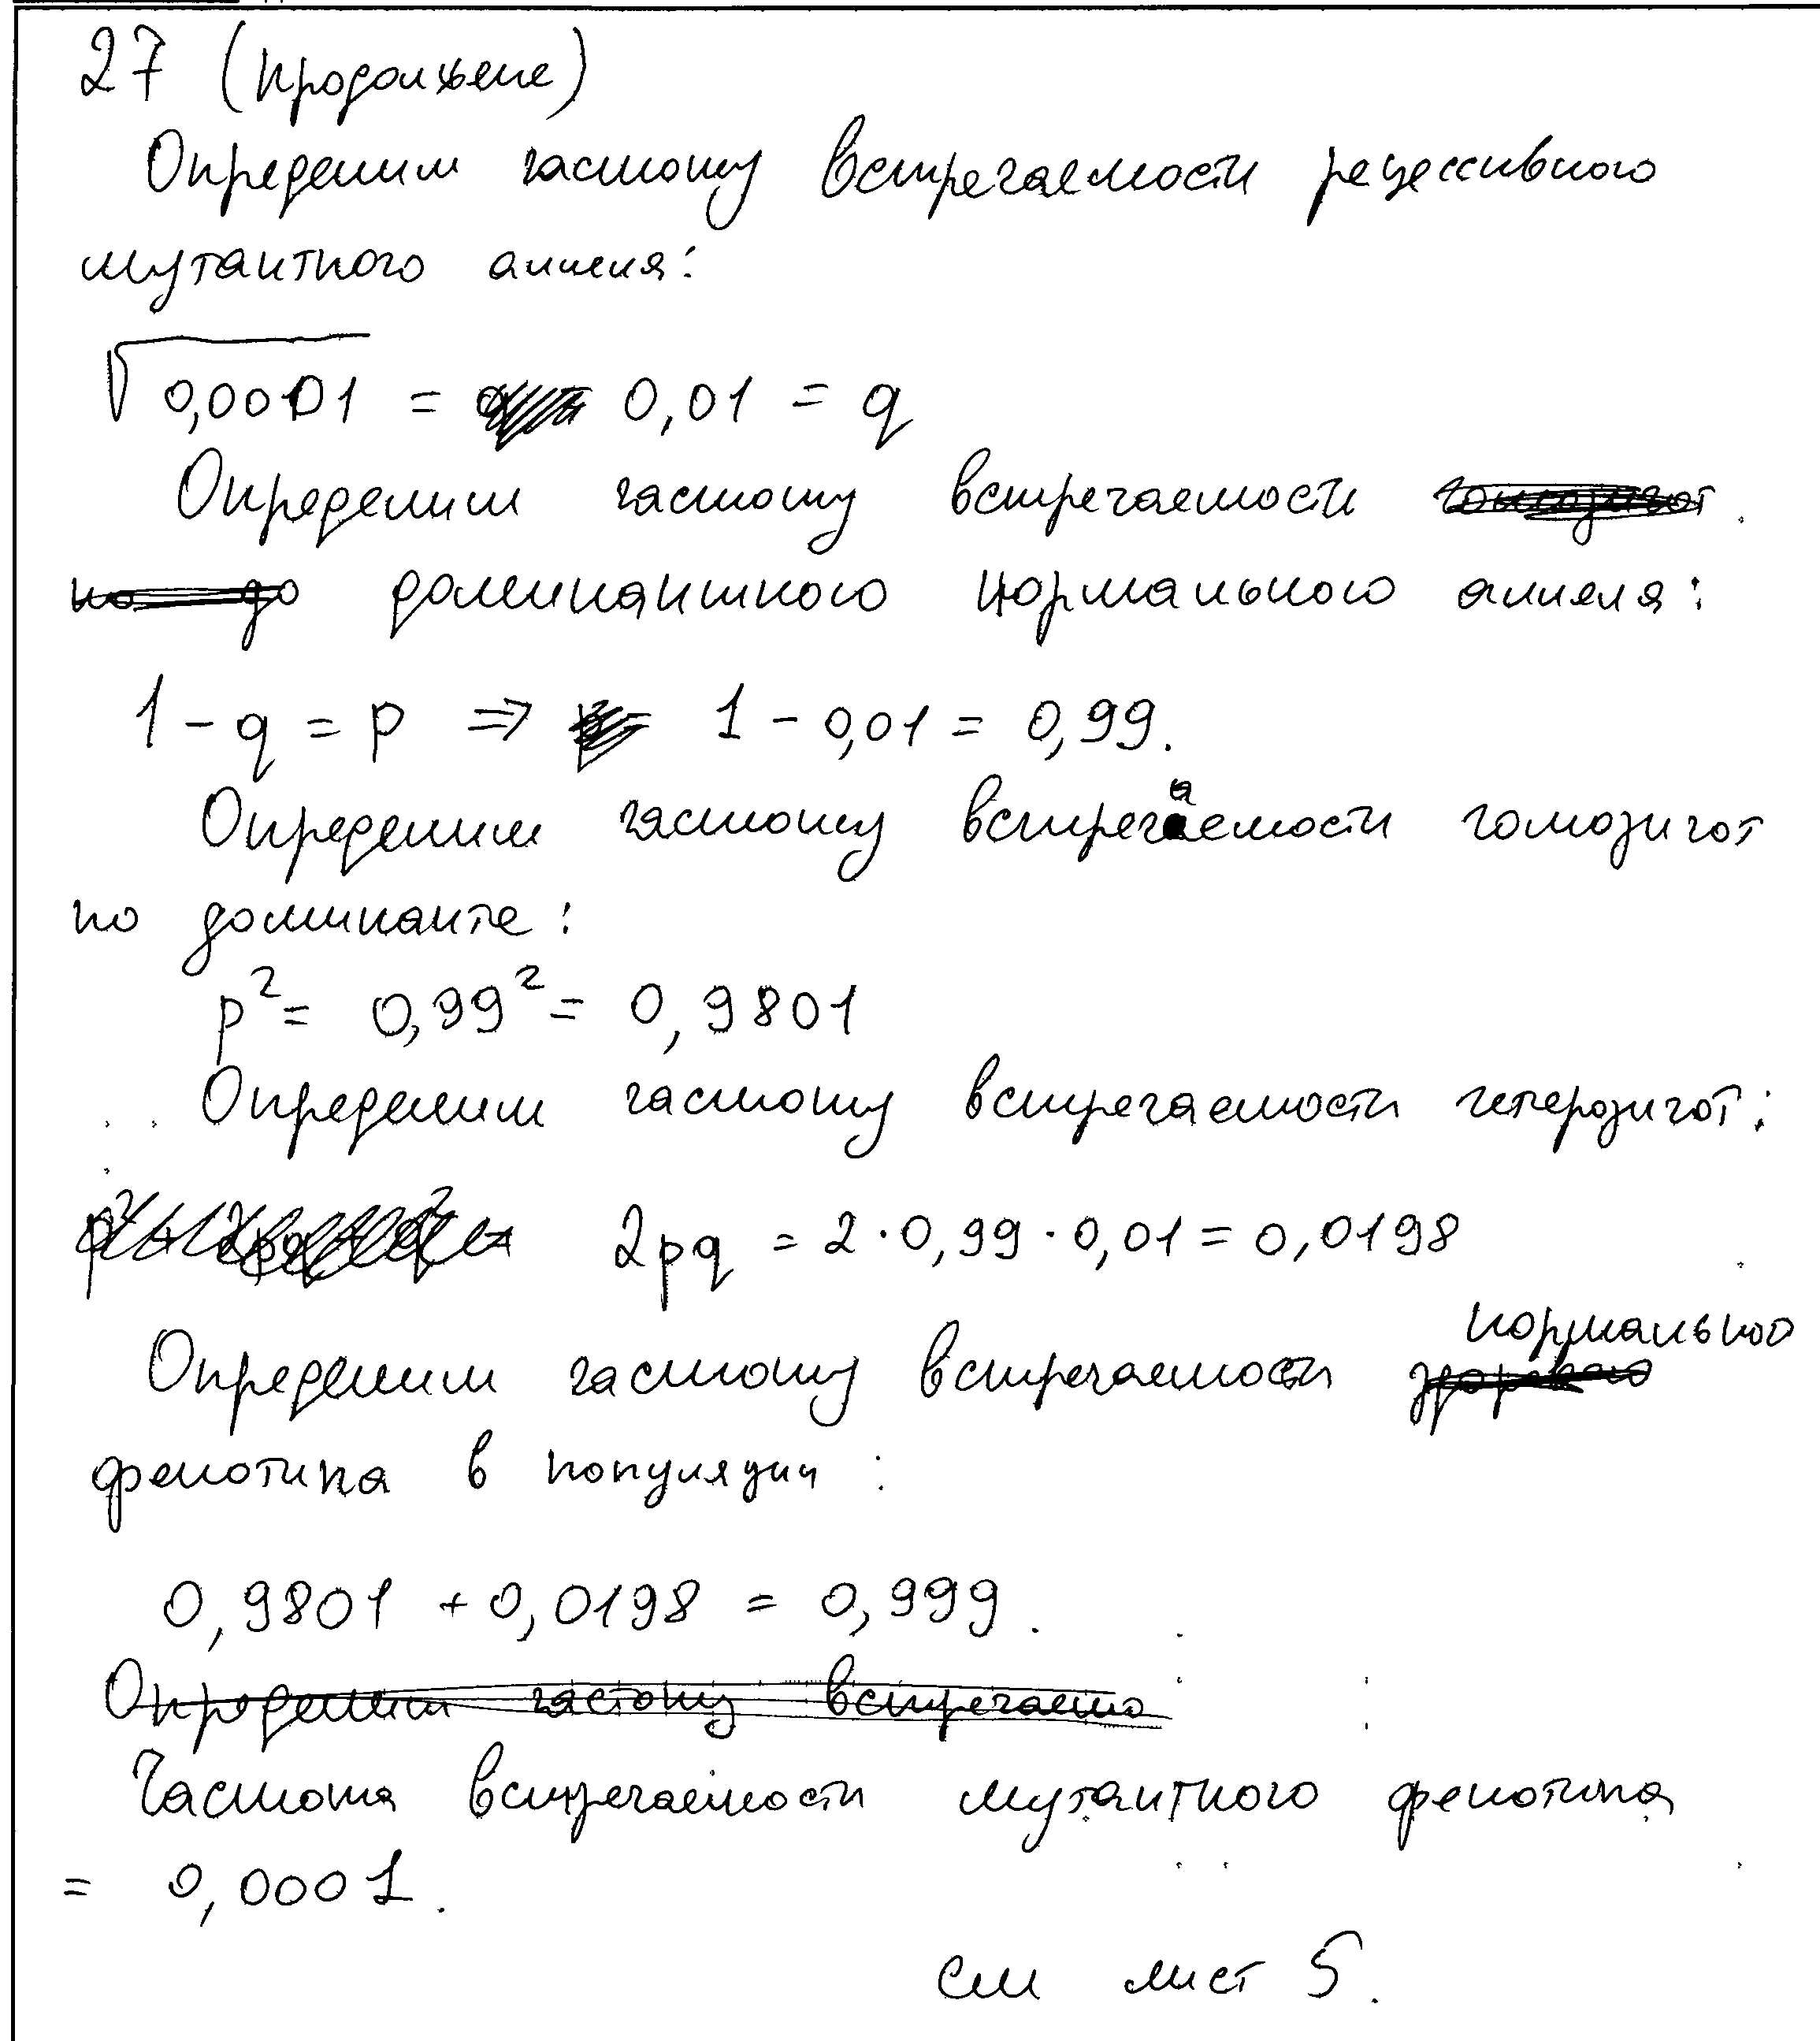 27 (продолжене)
Определим частоту встречаемости рецессивного
мутантного аллеля:
√0,0001 = 0,01 = q
Определим частоту встречаемости гомозигот
по до доминантного нормального аллеля:
1 - q = p ⇒ 1 - 0,01 = 0,99.
Определим частоту встречаемости гомозигот
по доминанте:
p² = 0,99² = 0,9801
Определим частоту встречаемости гетерозигот:
p² + 2pq + q² = 2pq = 2 · 0,99 · 0,01 = 0,0198
нормального
Определим частоту встречаемости
фенотипа в популяции:
0,9801 + 0,0198 = 0,999.
Определим частоту встречаемо
Частота встречаемости мутантного фенотипа
= 0,0001.
см лист 5.